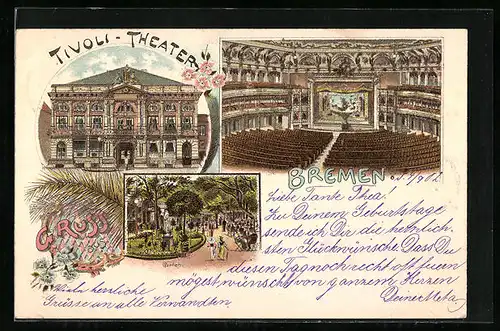 TIVOLI - THEATER
GRUSS
BREMEN
Garten
Liebe Tante Thea!
Zu Deinem Geburtstage
sende ich Dir die herzlich-
sten Glückwünsche. Dass Du
diesen Tag noch recht oft feiern
mögest wünscht von ganzem Herzen
Deine Meta.
Viele herzliche
Grüsse an alle Verwandten.